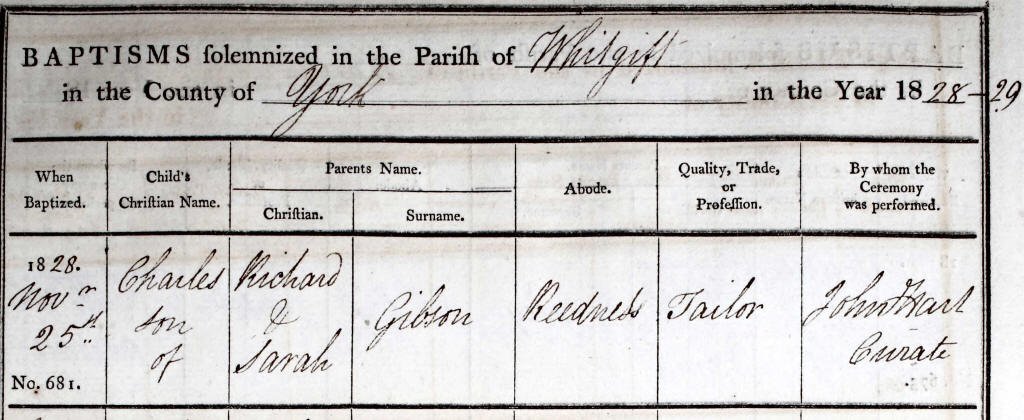 BAPTISMS ſolemnized in the Pariſh of Whitgift
in the County of York in the Year 1828-29
When Baptized.
Child's Chriſtian Name.
Parents Name.
Chriſtian.
Surname.
Abode.
Quality, Trade, or Profeſſion.
By whom the Ceremony was performed.
1828.
Novr
25th
No. 681.
Charles
son
of
Richard
&
Sarah
Gibson
Reedness
Tailor
John
Curate